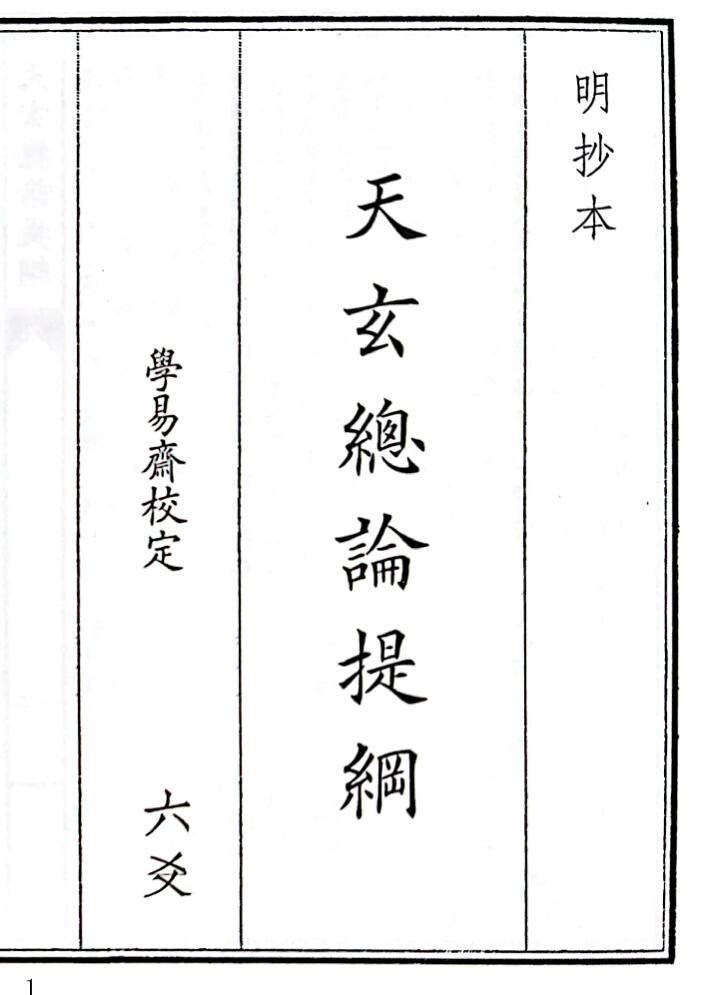 明抄本
天玄總論提綱
學易齋校定
六爻
1